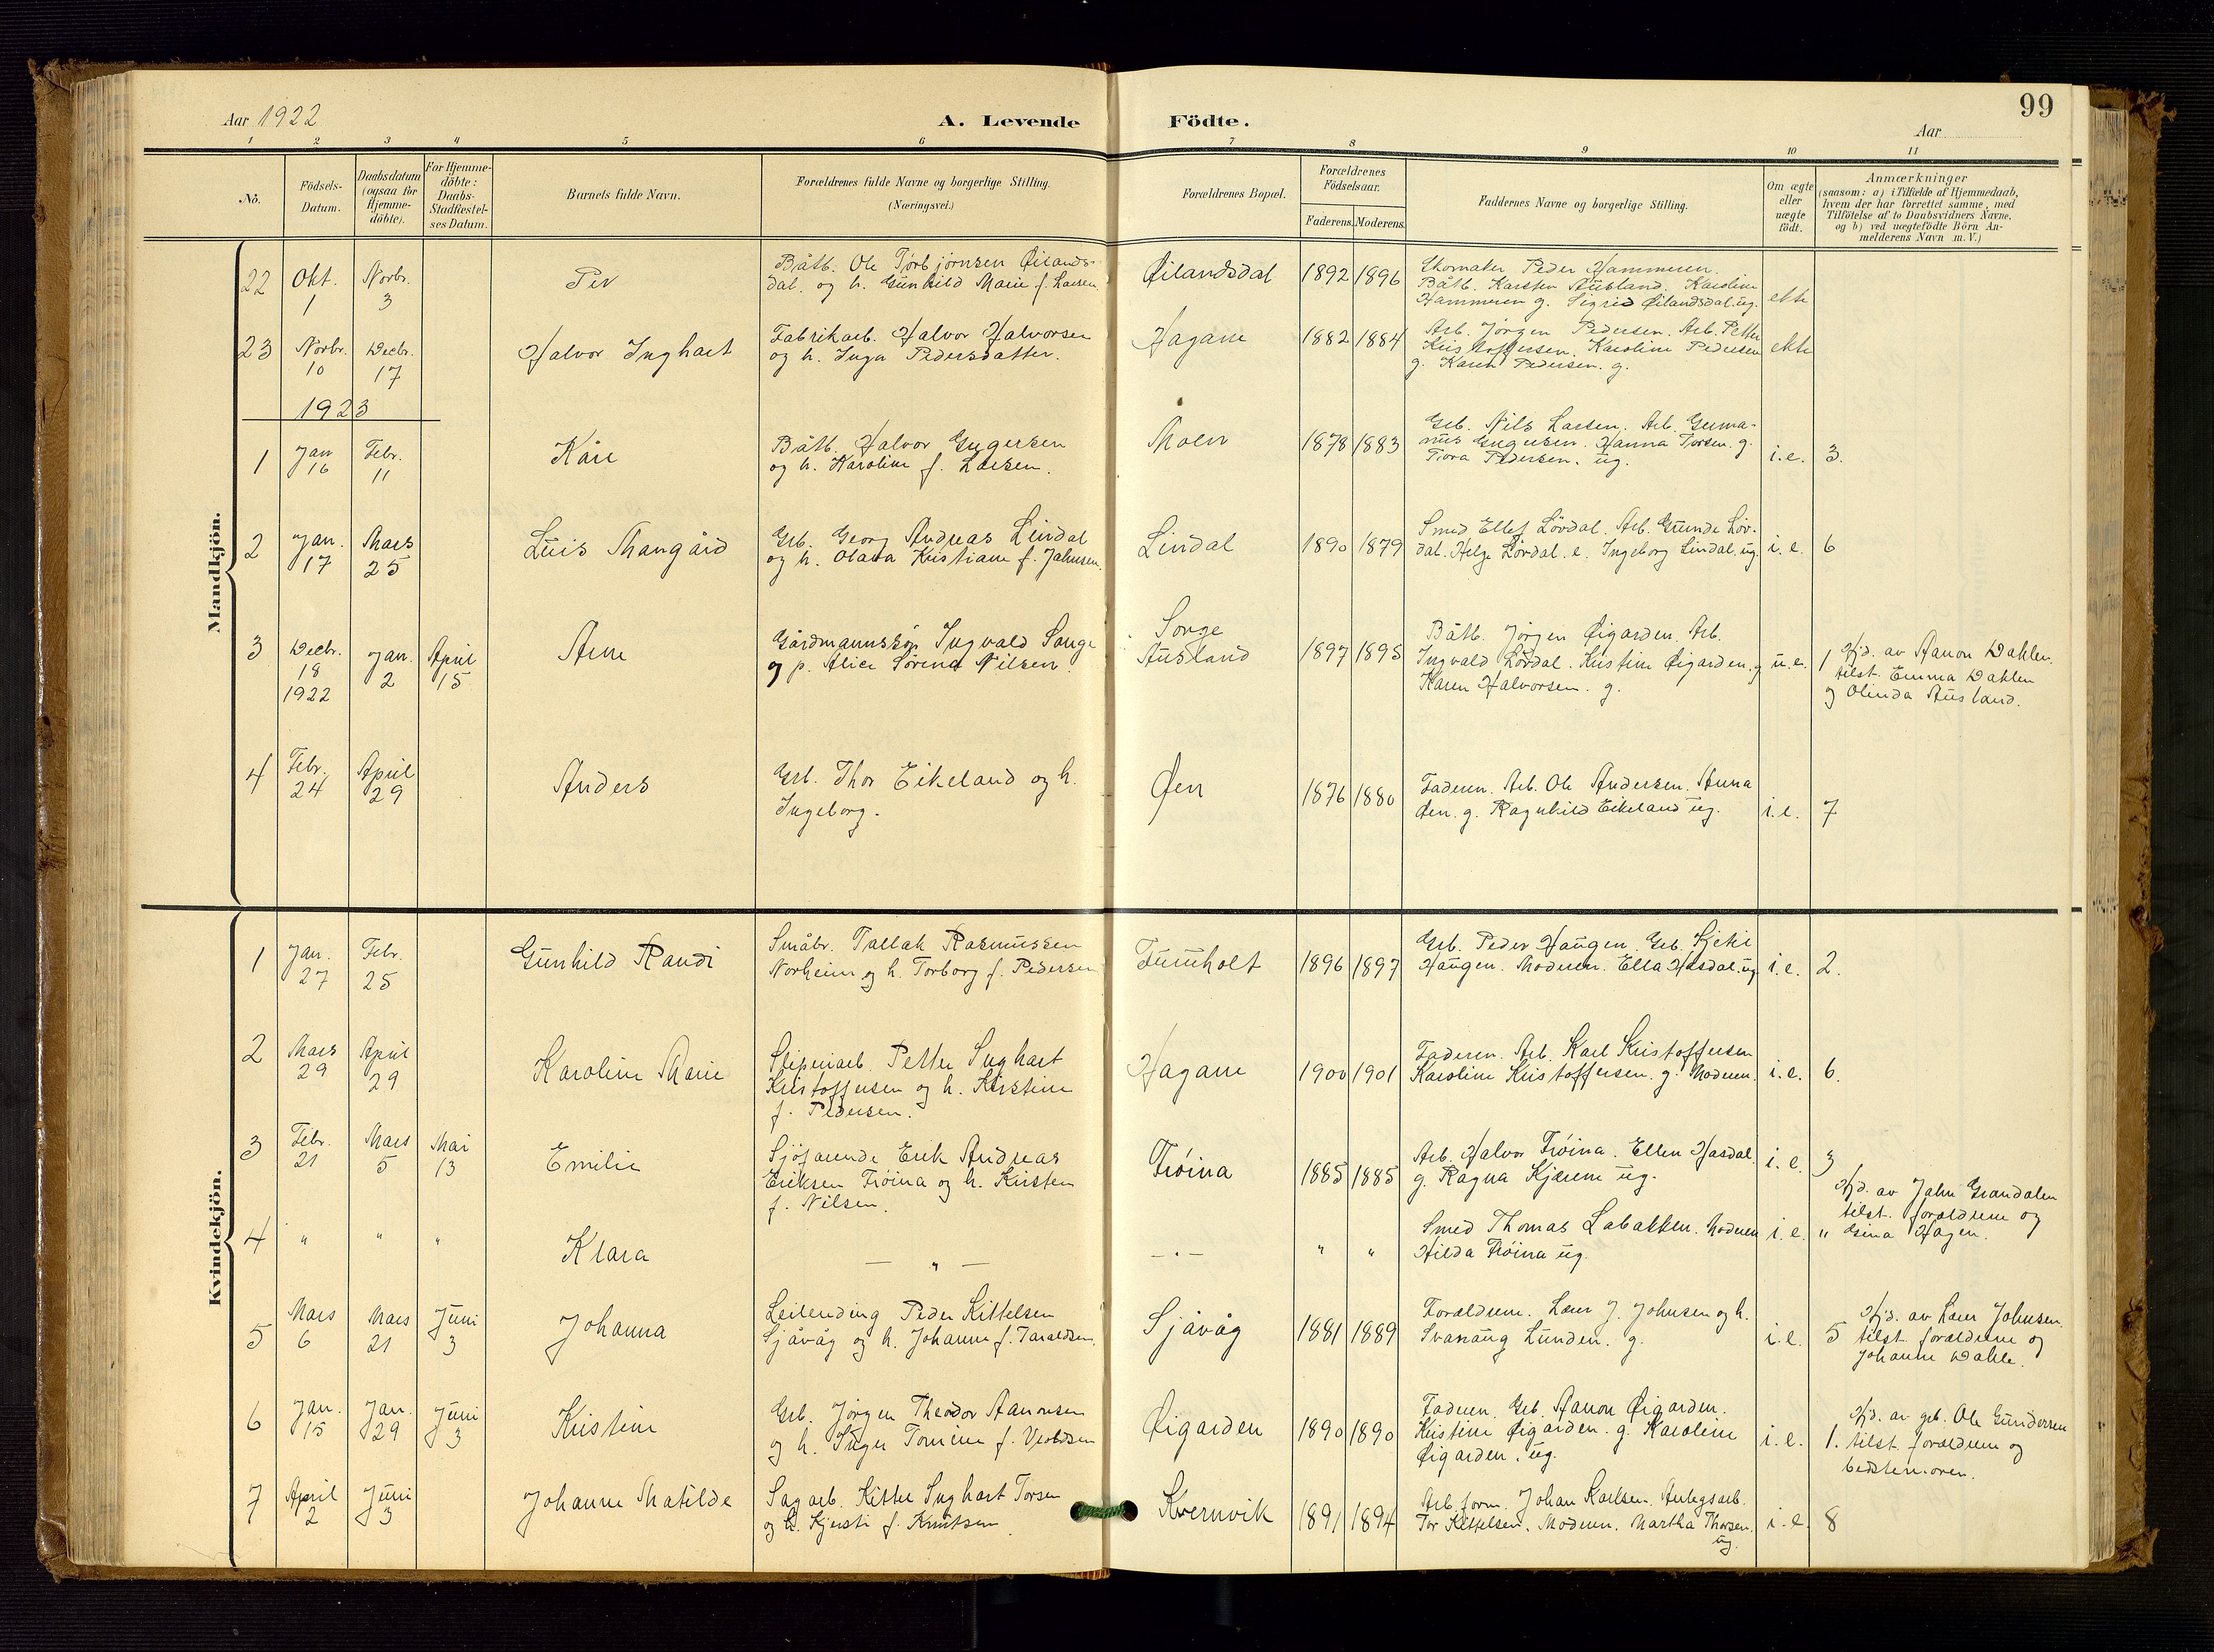 Aar 1922
A. Levende Födte.
99
Aar
1 2 3 4 5 6 7 8 9 10 11
No.
Födsels-
Datum.
Daabsdatum
(ogsaa for
Hjemme-
döbte).
For Hjemme-
döbte:
Daabs-
Stadfæstel-
ses Datum.
Barnets fulde Navn.
Forældrenes fulde Navne og borgerlige Stilling.
(Næringsvei.)
Forældrenes Bopæl.
Forældrenes
Födselsaar.
Faderens. Moderens.
Faddernes Navne og borgerlige Stilling.
Om ægte
eller
uægte
födt.
Anmærkninger
(saasom: a) i Tilfælde af Hjemmedaab,
hvem der har forrettet samme, med
Tilföielse af to Daabsvidners Navne,
og b) ved uægtefödte Börn An-
melderens Navn m. V.)
Mandkjön.
22 Okt. 1 Novbr. 3
Per
Båtb. Ole Torbjörnsen Øilands-
dal. og h. Gunhild Marie f. Larsen.
Øilandsdal 1892 1896
Skomaker Peder Hammeren.
Båtb. Karsten Ausland. Karoline
Hammeren g. Sigrid Øilandsdal. ug.
ekte
23 Novbr. 10 Decbr. 17
Halvor Inghart
Fabrikarb. Halvor Halvorsen
og h. Inga Pedersdatter.
Hagane 1882 1884
Arb. Jörgen Pedersen. Arb. Petter
Kristoffersen. Karoline Pedersen
g. Karen Pedersen. g.
ekte
1923
1 Jan 16 Febr. 11
Kåre
Båtb. Halvor Gregersen
og h. Karoline f. Larsen.
Moen 1878 1883
Grb. Nils Larsen. Arb. Germa-
nus Gregersen. Hanna Torsen. g.
Tora Pedersen. ug.
i.e. 3.
2 Jan. 17 Mars 25
Luis Mangård
Grb. Georg Andreas Lindal
og h. Olava Kristiane f. Jahnsen.
Lindal 1890 1879
Smed Ellef Lövdal. Arb. Gunde Löv-
dal. Helge Lövdal. e. Ingeborg Lindal. ug.
i. e. 6
3 Decbr. 18 1922 Jan. 2 April 15
Arne
Gårdmannssøn Ingvald Songe
og p. Alice Sørena Nilsen.
Songe
Ausland 1897 1895
Båtb. Jörgen Øigarden. Arb.
Ingvald Lövdal. Kristine Øigarden. g
Karen Halvorsen. g.
u.e. 1
Hjd. av Aanon Dahlen.
tilst. Emma Dahlen
og Olinda Ausland.
4 Febr. 24 April 29
Anders
Grb. Thor Eikeland og h.
Ingeborg.
Øen 1876 1880
Faderen. Arb. Ole Andersen. Anna
Øen. g. Ragnhild Eikeland ug.
i.e. 7
Kvindekjön.
1 Jan. 27 Febr. 25
Gunhild Randi
Småbr. Tallak Rasmussen
Norheim og h. Torborg f. Pedersen
Furuholt 1896 1897
Grb. Peder Haugen. Grb. Kjetil
Haugen. Moderen. Ella Hasdal. ug
i. e. 2.
2 Mars 29 April 29
Karoline Marie
Sliperiarb. Petter Inghart
Kristoffersen og h. Kirstine
f. Pedersen.
Hagane 1900 1901
Faderen. Arb. Karl Kristoffersen
Karoline Kristoffersen. g. Moderen.
i. e. 6.
3 Febr. 21 Mars 5 Mai 13
Emilie
Sjöfarende Erik Andreas
Eriksen Trøina og h. Kirsten
f. Nilsen.
Trøina 1885 1885
Arb. Halvor Trøina. Ellen Hasdal.
g. Ragna Kjærene ug.
i. e. 3
Hjd. av Jahn Grandalen
tilst. forældrene og
Osina Hagen.
4 " " "
Klara
— " —
— " — " "
Smed Thomas Labakken. Moderen
Hilda Trøina ug.
i. e. "
5 Mars 6 Mars 21 Juni 3
Johanna
Leilending Peder Kittelsen
Sjåvåg og h. Johanne f. Taraldsen.
Sjåvåg 1881 1889
Forældrene. Lars J. Johnsen og h.
Svanaug Lunden. g.
i.e. 5
Hjd. av Lars Johnsen.
tilst. forældrene og
Johanne Dahle.
6 Jan. 15 Jan. 29 Juni 3
Kristine
Grb. Jörgen Theodor Aanonsen
og h. Inger Tomine f. Veroldsen
Øigarden 1890 1890
Faderen. Grb. Aanon Øigarden.
Kristine Øigarden. g. Karoline
Øigarden. ug.
i. e. 1.
Hjd. av grb. Ole Gundersen
tilst. forældrene og
bedstemoren.
7 April 2 Juni 3
Johanne Matilde
Sagarb. Kittel Inghart Torsen
og h. Kjersti f. Knutsen.
Kvernvik 1891 1894
Arb. form. Johan Karlsen. Anlegsarb.
Tor Kittelsen. Moderen. Martha Thorsen.
ug.
i. e. 8